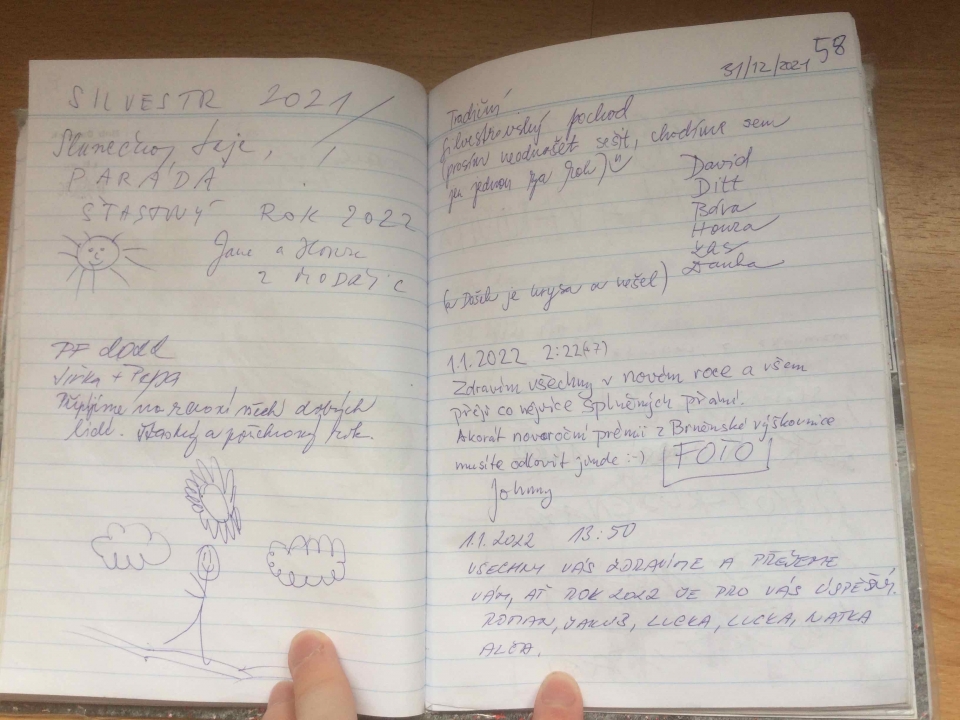 SILVESTR 2021
Slunečný
PARÁDA
ŠŤASTNÝ ROK 2022
Jana a Honza
z MODŘIC
PF 2022
Jirka + Pepa
Připíjíme na zdraví všech dobrých
lidí. Šťastný a pohodový rok.
58
31/12/2021
Tradiční
silvestrovský pochod
(prosím neodnášet sešit, chodíme sem
jen jednou za rok)
David
Ditt
Bára
Honza
Danka
(a Dašek je krysa a nešel)
1.1.2022 2:22(47)
Zdravím všechny v novém roce a všem
přeji co nejvíce splněných přání.
Akorát novoroční prémii z Brněnské výškovnice
musíte odlovit jinde :-) FOTO
Johnny
1.1.2022 13:50
VŠECHNY VÁS ZDRAVÍME A PŘEJEME
VÁM, AŤ ROK 2022 JE PRO VÁS ÚSPĚŠNÝ.
ROMAN, JAKUB, LUCKA, LUCKA, NATKA